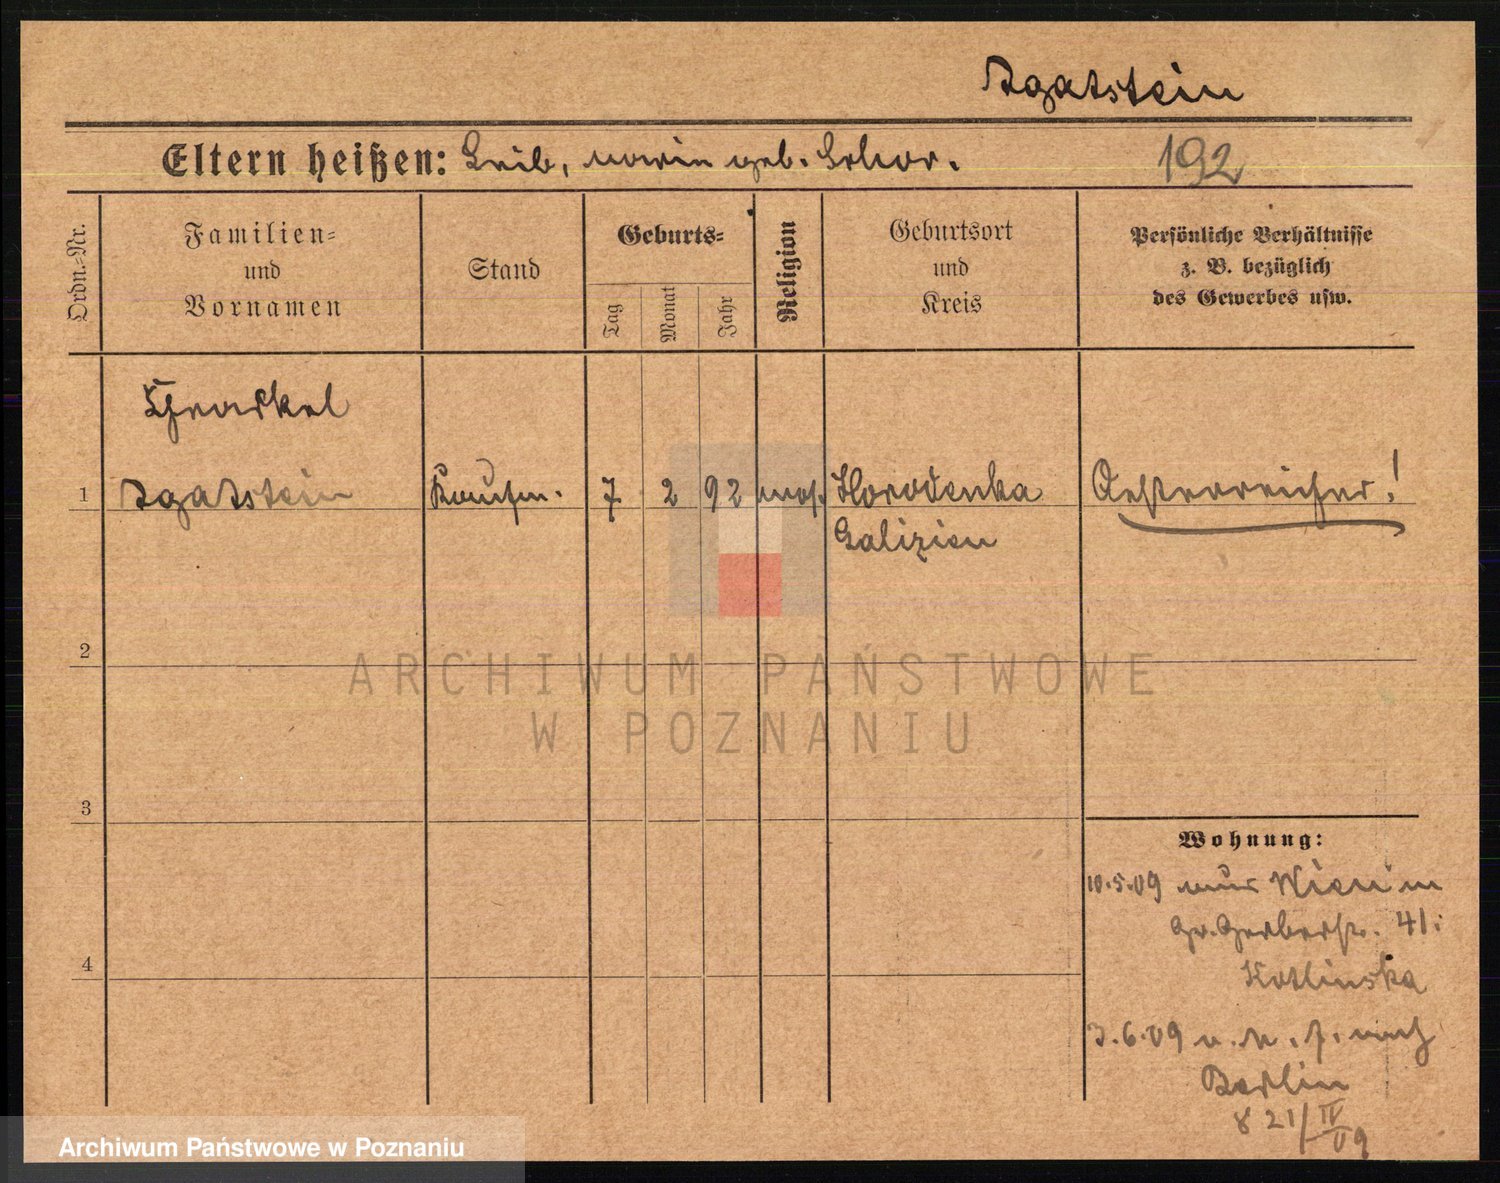 Agatstein
Eltern heißen: Leib, geb. Schor.
192
Ordn.-Nr.
Familien-
und
Vornamen
Stand
Geburts-
Tag
Monat
Jahr
Religion
Geburtsort
und
Kreis
Persönliche Verhältnisse
z. B. bezüglich
des Gewerbes usw.
1
Agatstein
Kaufm.
7
2
92
mos.
Horodenka
Galizien
Oesterreicher!
2
3
4
Wohnung:
10.5.09 aus Wien in
Gr. Gerberstr. 41.
Kotlinska
3.6.09 nach
Berlin
8 21/IV 09
ARCHIWUM PAŃSTWOWE
W POZNANIU
Archiwum Państwowe w Poznaniu